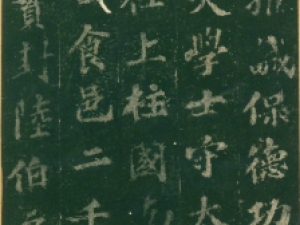 推誠保德功
大學士守太
柱上柱國
食邑二千
實封陸伯